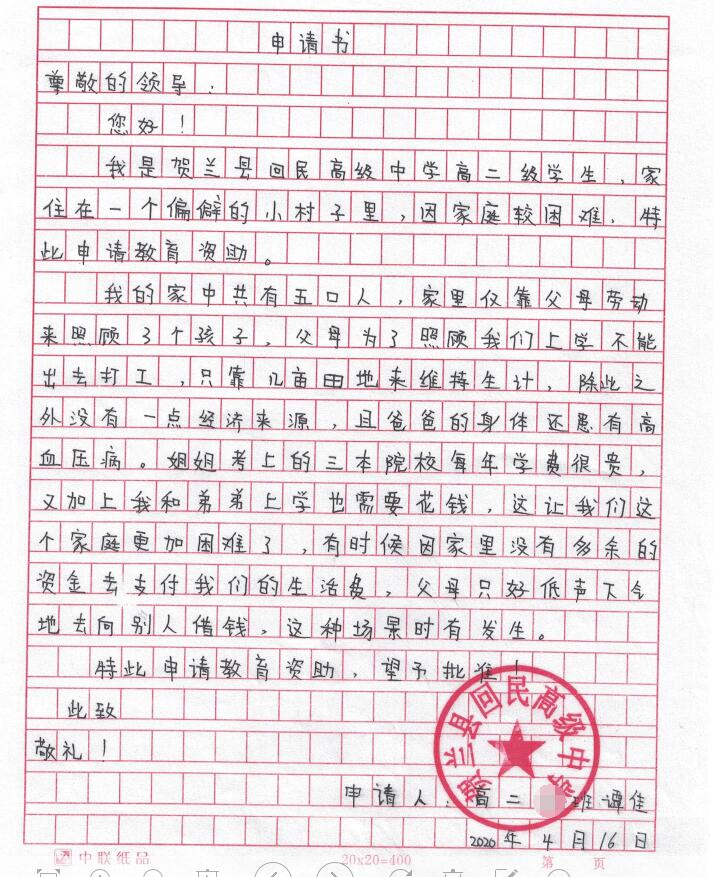 申请书
尊敬的领导：
您好！
我是贺兰县回民高级中学高二级学生，家
住在一个偏僻的小村子里，因家庭较困难，特
此申请教育资助。
我的家中共有五口人，家里仅靠父母劳动
来照顾3个孩子，父母为了照顾我们上学不能
出去打工，只靠几亩田地来维持生计，除此之
外没有一点经济来源，且爸爸的身体还患有高
血压病。姐姐考上的三本院校每年学费很贵，
又加上我和弟弟上学也需要花钱，这让我们这
个家庭更加困难了，有时候因家里没有多余的
资金去支付我们的生活费，父母只好低声下气
地去向别人借钱，这种场景时有发生。
特此申请教育资助，望予批准！
此致
敬礼！
贺兰县回民高级中学
申请人：高二 班谭佳
2020年4月16日
中联纸品
20x20=400
第 页